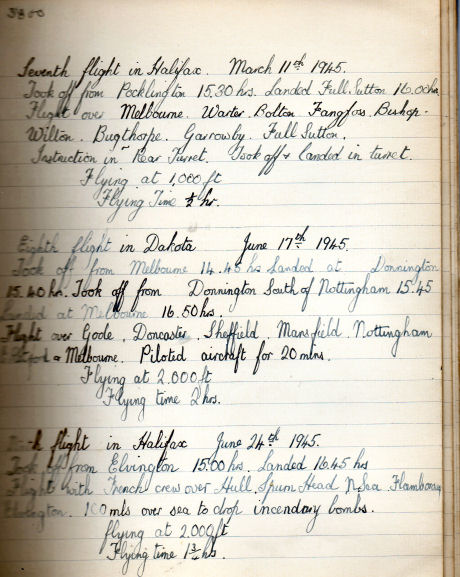 3800
Seventh flight in Halifax. March 11th 1945.
Took off from Pocklington 15.30 hrs. Landed Full Sutton 16.00 hrs
Flight over Melbourne. Warter. Bolton. Fangfoss. Bishop-
Wilton. Bugthorpe. Garrowby. Full Sutton.
Instruction in Rear Turret. Took off & landed in turret.
Flying at 1,000 ft
Flying Time ½ hr.
Eighth flight in Dakota June 17th 1945.
Took off from Melbourne 14.45 hrs Landed at Donnington
15.40 hr. Took off from Donnington South of Nottingham 15.45
Landed at Melbourne 16.50 hrs.
Flight over Goole, Doncaster, Sheffield, Mansfield, Nottingham
& Melbourne. Piloted aircraft for 20 mins.
Flying at 2,000 ft
Flying time 2 hrs.
flight in Halifax June 24th 1945.
Took off from Elvington 15.00 hrs. Landed 16.45 hrs
Flight with French crew over Hull, Spurn Head N.Sea. Flamboro
Elvington. 100 mls over sea to drop incendiary bombs.
flying at 2000 ft
Flying time 1¾ hrs.